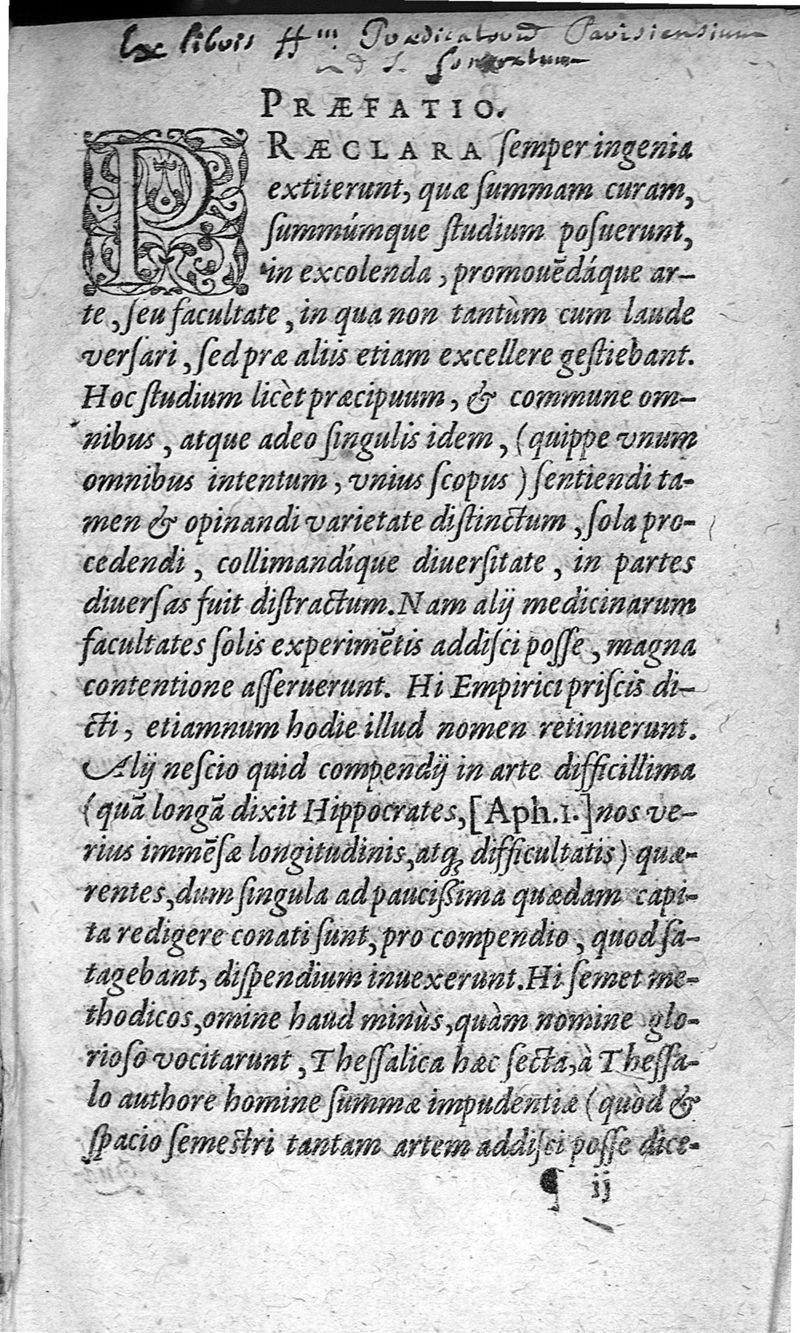 Ex libris ff^um Prædicatorũ Parisiensium
ad S.
PRÆFATIO.
PRÆCLARA ſemper ingenia
extiterunt, quæ ſummam curam,
ſummúmque ſtudium poſuerunt,
in excolenda, promouẽdáque ar-
te, ſeu facultate, in qua non tantùm cum laude
verſari, ſed præ aliis etiam excellere geſtiebant.
Hoc ſtudium licèt præcipuum, & commune om-
nibus, atque adeo ſingulis idem, (quippe vnum
omnibus intentum, vnius ſcopus) ſentiendi ta-
men & opinandi varietate diſtinctum, ſola pro-
cedendi, collimandíque diuerſitate, in partes
diuerſas fuit diſtractum. Nam alij medicinarum
facultates ſolis experimẽtis addiſci poſſe, magna
contentione aſſeruerunt. Hi Empirici priſcis di-
cti, etiamnum hodie illud nomen retinuerunt.
Alij neſcio quid compendij in arte difficillima
(quã longã dixit Hippocrates, [Aph.1.] nos ve-
rius immẽſæ longitudinis, atq; difficultatis) quæ-
rentes, dum ſingula ad pauciſſima quædam capi-
ta redigere conati ſunt, pro compendio, quod ſa-
tagebant, diſpendium inuexerunt. Hi ſemet me-
thodicos, omine haud minùs, quàm nomine glo-
rioſo vocitarunt, Theſſalica hæc ſecta, à Theſſa-
lo authore homine ſummæ impudentiæ (quòd &
ſpacio ſemeſtri tantam artem addiſci poſſe dice-
¶ ij